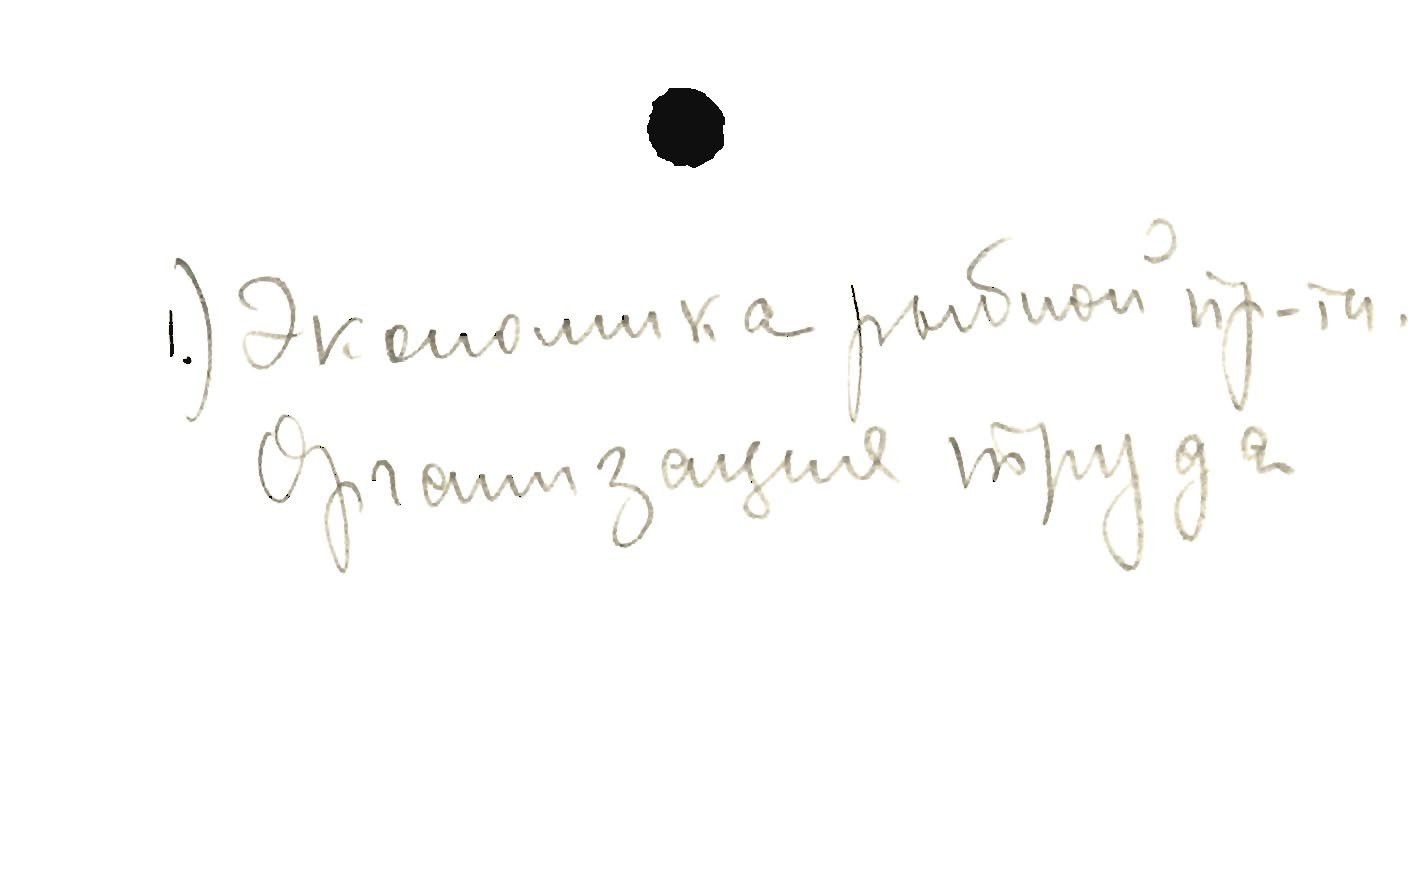 1.) Экономика рыбной пр-ти.
Организация труда